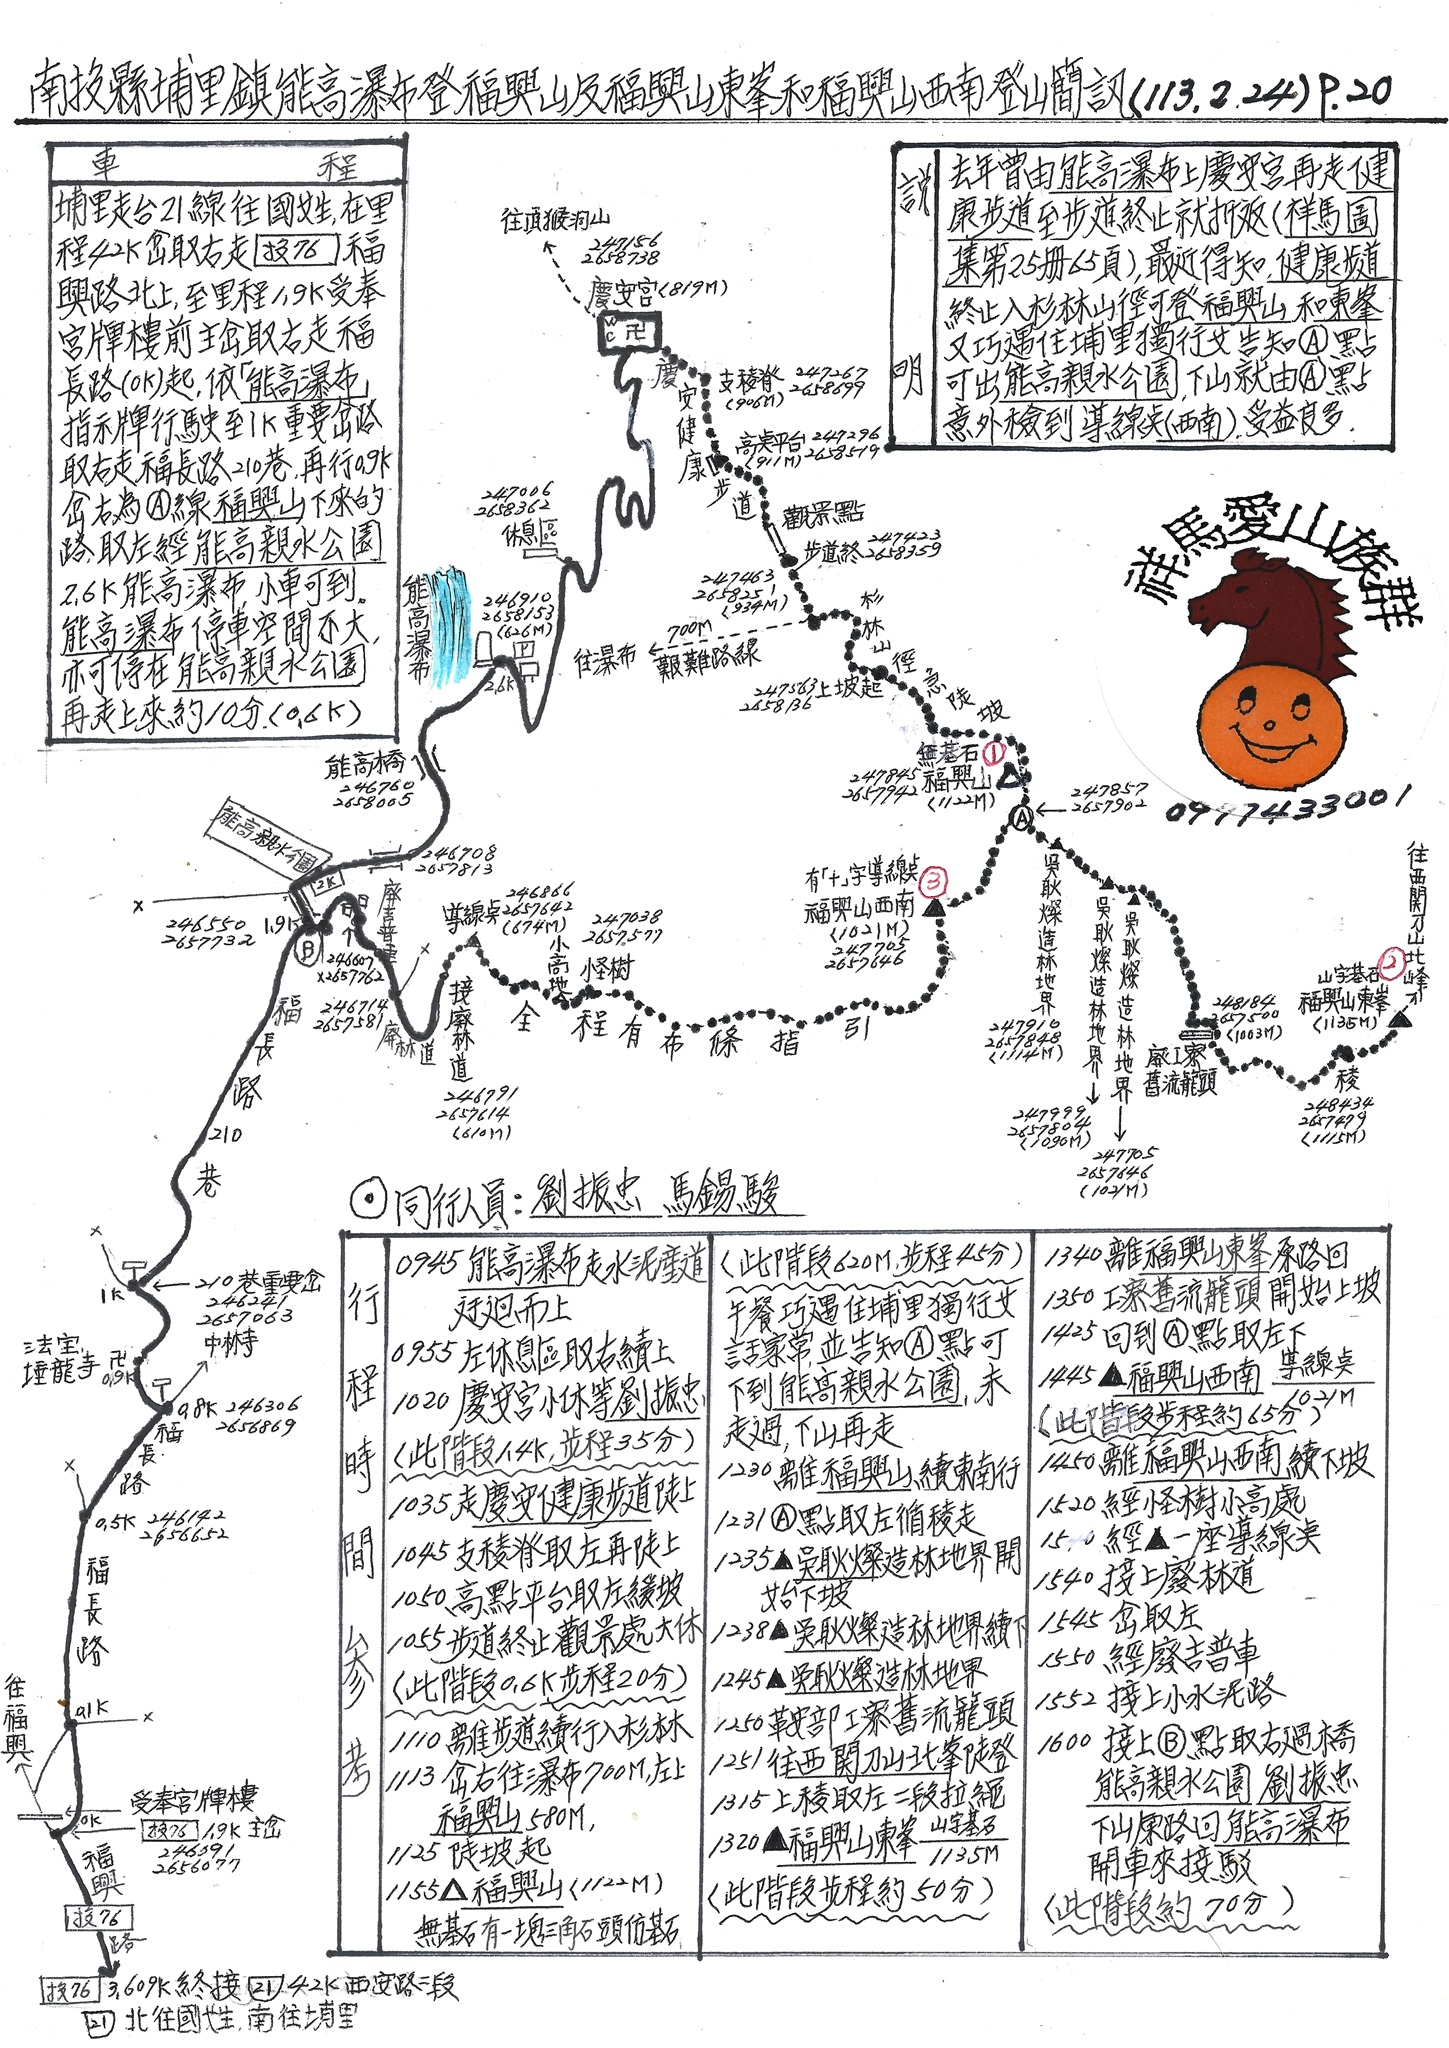 南投縣埔里鎮能高瀑布登福興山及福興山東峯和福興山西南登山簡訊(113.2.24)P.20
車程
埔里走台21線往國姓,在里
程42K岔取右走投76福
興路北上,至里程1.9K受奉
宮牌樓前主岔取右走福
長路(0K)起,依「能高瀑布」
指示牌行駛至1K重要岔路
取右走福長路210巷,再行0.9K
岔右為Ⓐ線福興山下來的
路,取左經能高親水公園
2.6K能高瀑布小車可到。
能高瀑布停車空間不大,
亦可停在能高親水公園
再走上來約10分.(0.6K)
說明
去年曾由能高瀑布上慶安宮再走健
康步道至步道終止就折返(祥馬圖
集第25册65頁),最近得知,健康步道
終止入杉林山徑可登福興山和東峯
又巧遇住埔里獨行女告知Ⓐ點
可出能高親水公園,下山就由Ⓐ點
意外檢到導線点(西南).受益良多.
祥馬愛山族群
0977433001
往頂猴洞山
247156
2658738
慶安宮(819M)
WC
卍
慶安健康步道
支稜脊
(906M)
247267
2658699
高点平台
(911M)
247296
2658519
觀景點
步道終
247423
2658359
247463
2658251
(934M)
往瀑布
700M
艱難路線
杉林山徑急陡坡
247563
2658136
上坡起
247006
2658362
休息區
能高瀑布
246910
2658153
(626M)
P
2.6K
無基石
①
247845
2657942
福興山
(1122M)
Ⓐ
247857
2657902
有「十」字導線点
③
福興山西南
(1021M)
247705
2657646
吳耿燦造林地界
247910
2657848
(1114M)
吳耿燦造林地界
247999
2657804
(1090M)
吳耿燦造林地界
247705
2657646
(1021M)
248184
2657500
(1003M)
廢工寮
舊流籠頭
稜
248434
2657479
(1115M)
山字基石
②
福興山東峯
(1135M)
往西關刀山北峰
能高橋
246760
2658005
能高親水公園
2K
246708
2657813
1.9K
246550
2657732
Ⓑ
246607
2657762
廢吉普車
246714
2657581
廢林道
導線点
246866
2657642
(674M)
接廢林道
246791
2657614
(610M)
小高地
怪樹
247038
2657577
全程有布條指引
福長路210巷
1K
210巷重要岔
246241
2657063
中林寺
法宝
埵龍寺
卍
0.9K
0.8K
246306
2656869
福長路
0.5K
246142
2656652
福長路
0.1K
往福興
0K
受奉宮牌樓
投76 1.9K主岔
246091
2656077
福興路
投76
投76 3.609K終接21 42K西安路二段
21 北往國姓,南往埔里
⊙同行人員:劉振忠 馬錫駿
行程時間參考
0945 能高瀑布走水泥產道
迂迴而上
0955左休息區取右續上
1020 慶安宮小休等劉振忠
(此階段1.4K,步程35分)
1035走慶安健康步道陡上
1045支稜脊取左再陡上
1050高點平台取左緩坡
1055步道終止觀景處大休
(此階段0.6K步程20分)
1110離步道續行入杉林
1113 岔右往瀑布700M,左上
福興山580M,
1125 陡坡起
1155△福興山(1122M)
無基石有一塊三角石頭仿基石
(此階段620M,步程45分)
午餐巧遇住埔里獨行女
話家常,並告知Ⓐ點可
下到能高親水公園,未
走過,下山再走
1230 離福興山,續東南行
1231Ⓐ點取左循稜走
1235▲吳耿燦造林地界開
始下坡
1238▲吳耿燦造林地界續下
1245▲吳耿燦造林地界
1250草安部工寮舊流籠頭
1251往西關刀山北峯陡登
1315上稜取左二段拉繩
1320▲福興山東峯 山字基石 1135M
(此階段步程約50分)
1340離福興山東峯原路回
1350工寮舊流籠頭開始上坡
1425回到Ⓐ點取左下
1445▲福興山西南 導線点 1021M
(此階段步程約65分)
1450離福興山西南,續下坡
1520 經怪樹小高處
經▲一座導線点
1540 接上廢林道
1545 岔取左
1550 經廢吉普車
1552 接上小水泥路
1600 接上Ⓑ點取右過橋
能高親水公園 劉振忠
下山原路回能高瀑布
開車來接駁
(此階段約70分)